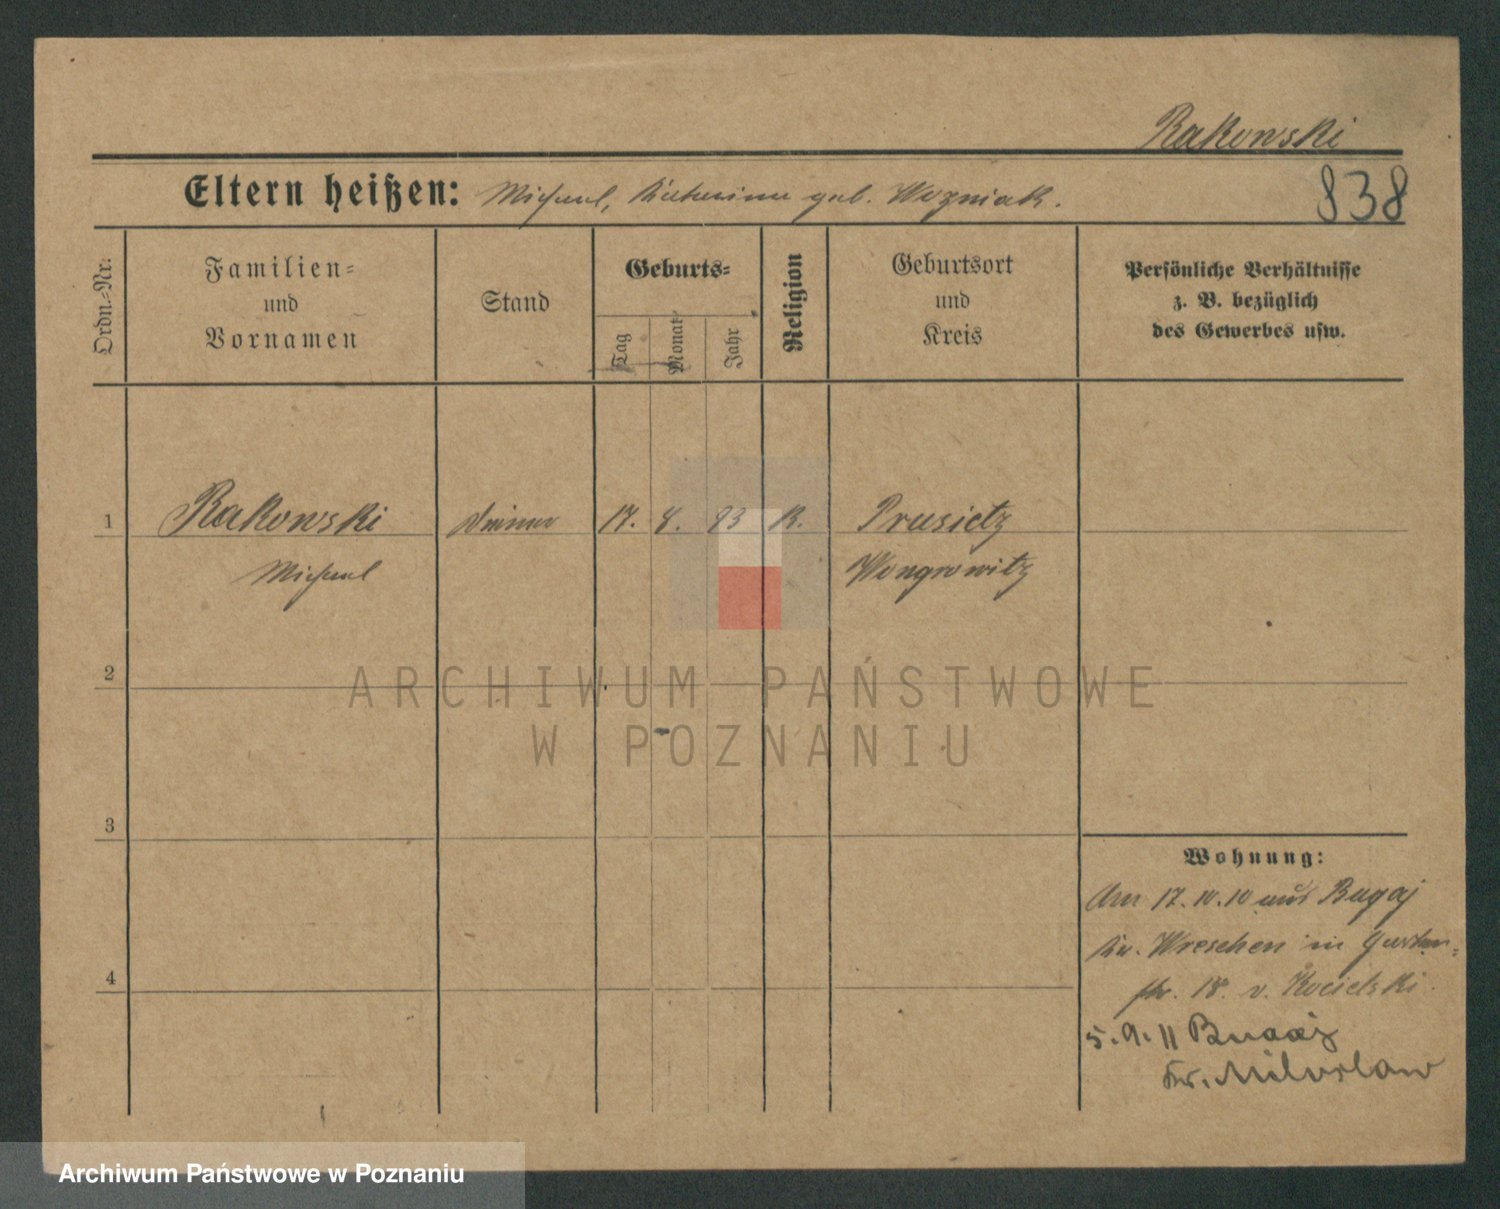 Rakowski
838
Eltern heißen: Michael, Katarina geb. Wozniak.
Ordn.-Nr.
Familien-
und
Vornamen
Stand
Geburts-
Tag
Monat
Jahr
Religion
Geburtsort
und
Kreis
Persönliche Verhältnisse
z. B. bezüglich
des Gewerbes usw.
1 Rakowski Diener 17. 8. 93 K. Prusietz
Michael Wongrowitz
2
ARCHIWUM PAŃSTWOWE
W POZNANIU
3
Wohnung:
Am 17.10.10 aus Bugaj
Kr. Wreschen in Garten-
4
str. 18. v. Koscielski.
5.9.11 Bugaj
Kr. Miloslaw
Archiwum Państwowe w Poznaniu